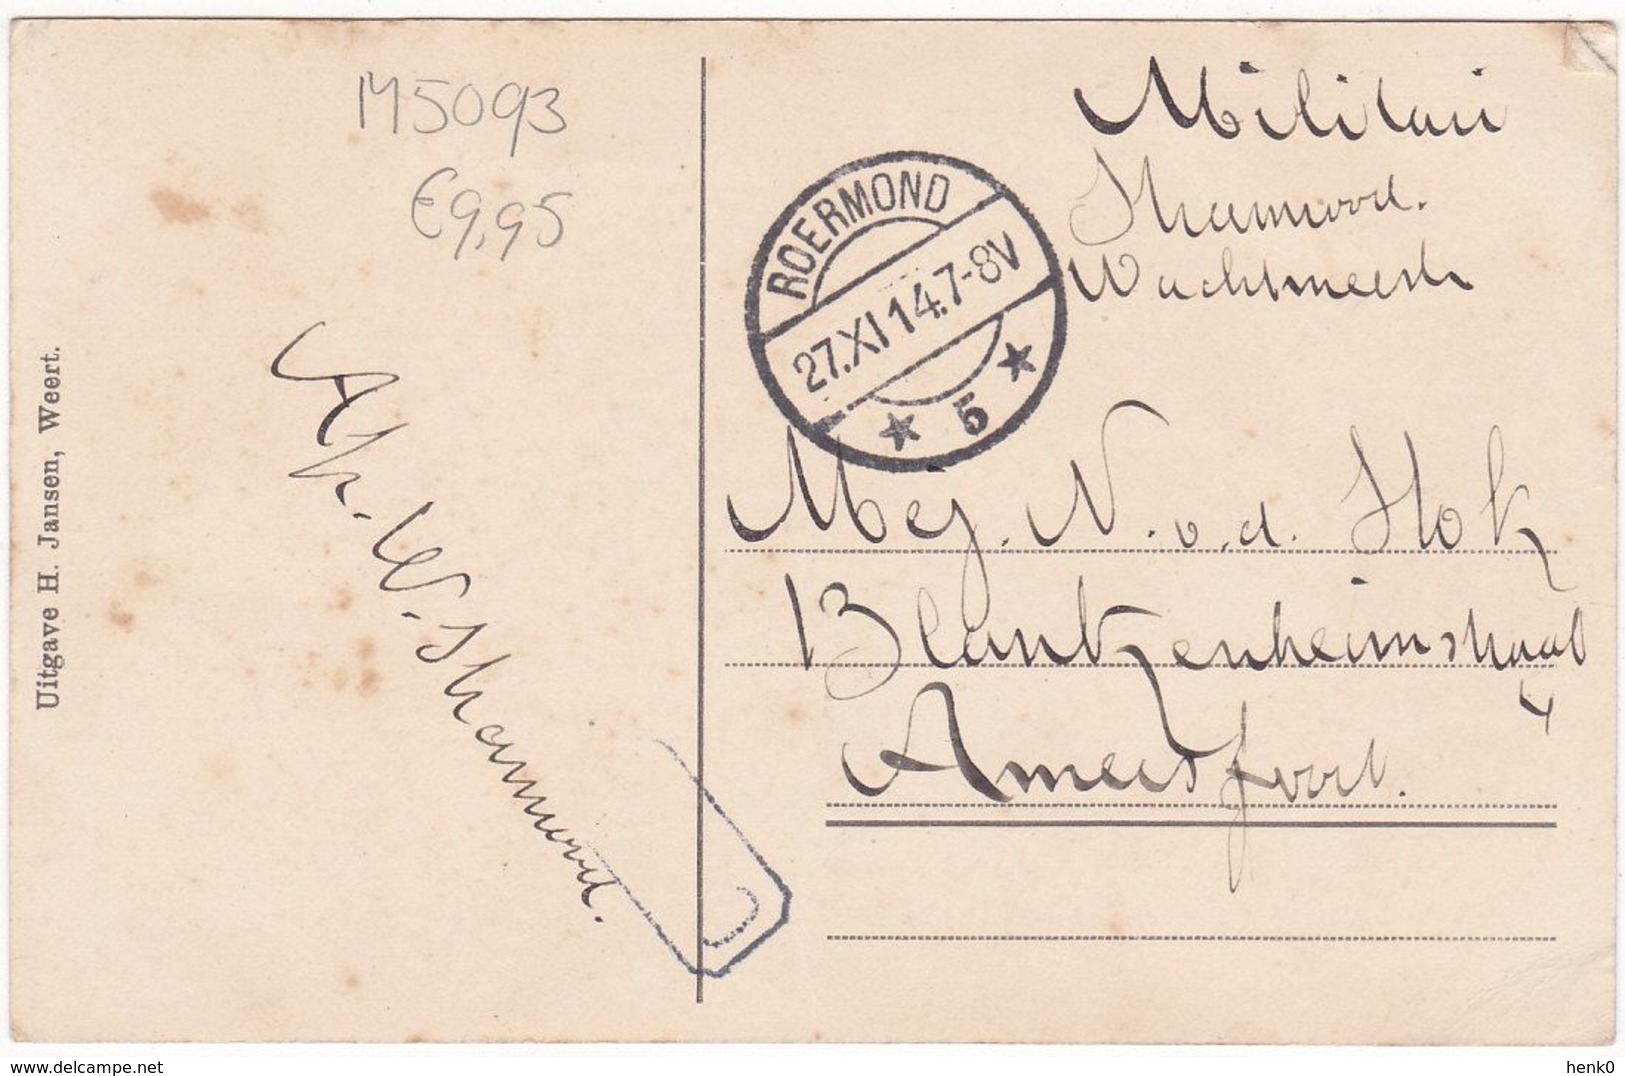 M5093
€9,95
Uitgave H. Jansen, Weert.
Militair
Wachtmeester
ROERMOND
27.XI 14.7-8V
5
Mej. N. v. d. Hok
Blantzenheimstraat
13
4
Amersfoort.
delcampe.net
henk0